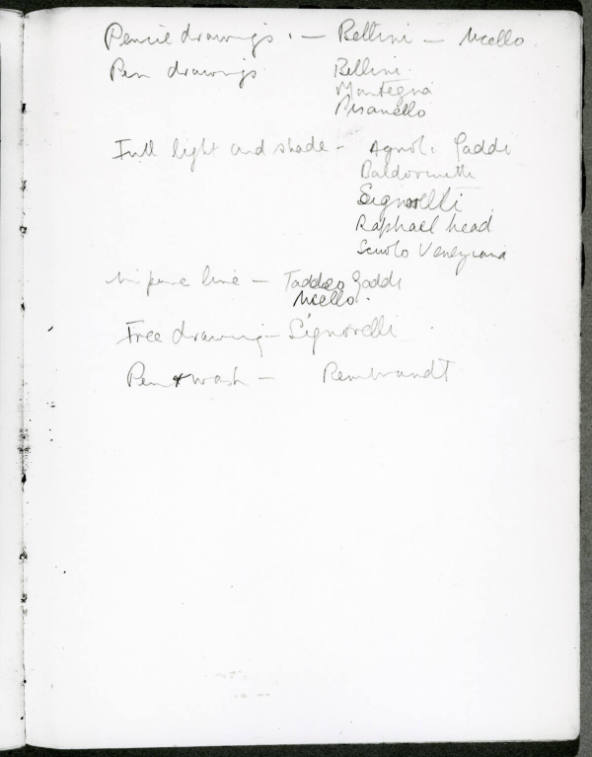 Pencil drawings. — Bellini — Ucello.
Pen drawings Bellini.
Mantegna
Pisanello
Full light and shade - Agnolo Gaddi
Baldovinetti
Signorelli
Raphael head
Scuolo Veneziana
In pure line — Taddeo Gaddi
Ucello.
Free drawing - Signorelli
Pen + wash — Rembrandt